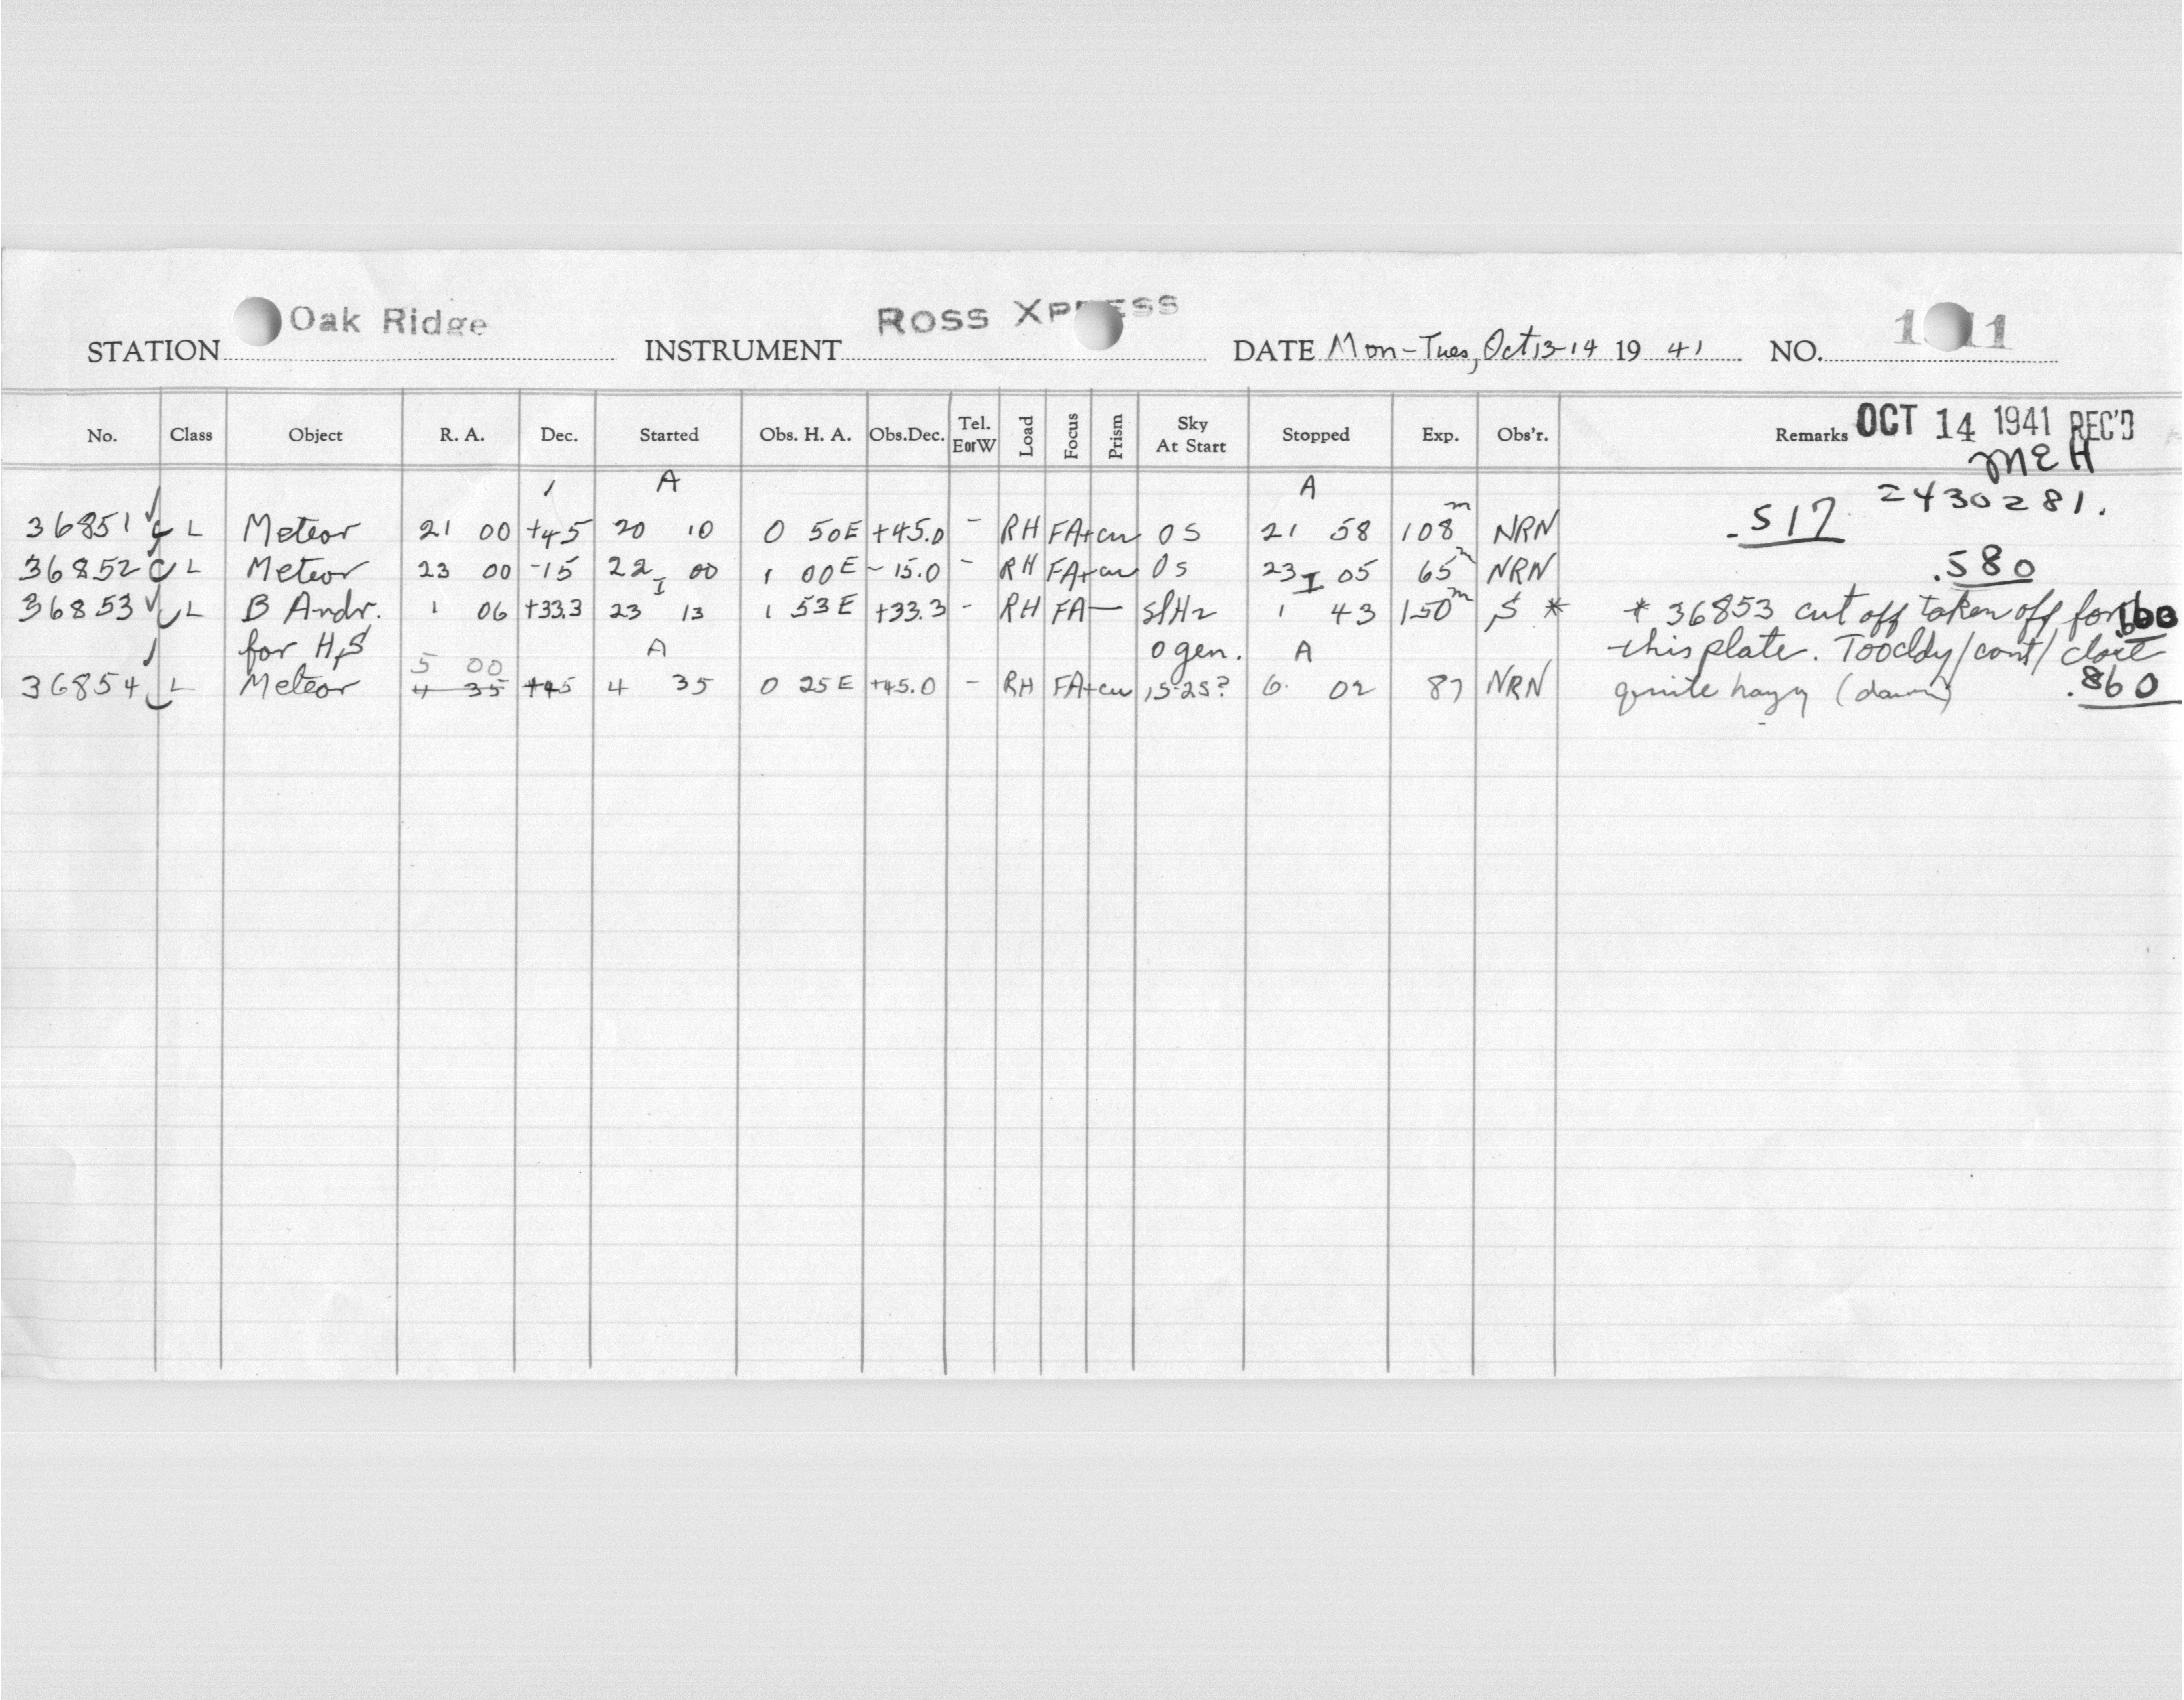 Oak Ridge ROSS XPRESS
STATION INSTRUMENT DATE Mon-Tues, Oct 13-14 19 41 NO.
No. Class Object R. A. Dec. Started Obs. H. A. Obs.Dec. Tel. E or W Load Focus Prism Sky At Start Stopped Exp. Obs'r. Remarks OCT 14 1941 REC'D
MEH
A A 2430281.
36851 L Meteor 21 00 +45 20 10 0 50E +45.0 - RH FA+cu 0 S 21 58 108m NRN .517
36852 L Meteor 23 00 -15 22 00 1 00E -15.0 - RH FA+cu 0 S 23 05 65m NRN .580
I I
36853 L B Andr. 1 06 +33.3 23 13 1 53E +33.3 - RH FA — slHz 1 43 150m S * * 36853 cut off taken off for
for HS A 0 gen. A this plate. Too cldy/cont/
5 00
36854 L Meteor 4 35 +45 4 35 0 25E +45.0 - RH FA+cu 1S-2S? 6 02 87 NRN quite hazy (dawn) .860